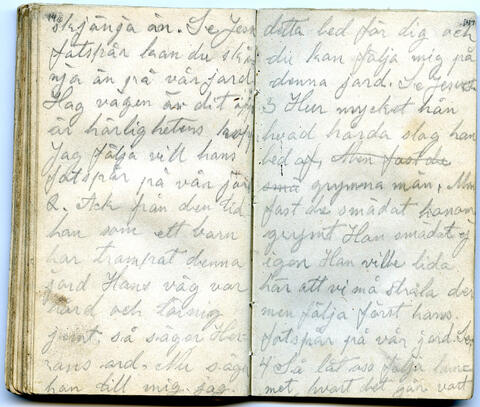 skjönja än. Se Jesu
fotspår kan du skö
nja än på vår jord
Hag vägen är det
är härlighetens
Jag följa vill hans
fotspår på vår jor
2. Ack från den tid
han som ett barn
har trampat denna
jord Hans väg var
hård och törnig
jemt, så säger Her-
rans ord. Nu säge
han till mig. jag
147
detta bed för dig och
du kan följa mig på
denna jord. Se Jesus
3 Hur mycket hån
hvad hårda slag han
led af, Men fast de
små grymma män, Men
fast de smädat honom
grymt Han smädat ej
igen Han ville lida
här att vi må stråla der
men följa först hans
fotspår på vår jord. Se,
4 Så låt oss följa
met, hvart det går vårt